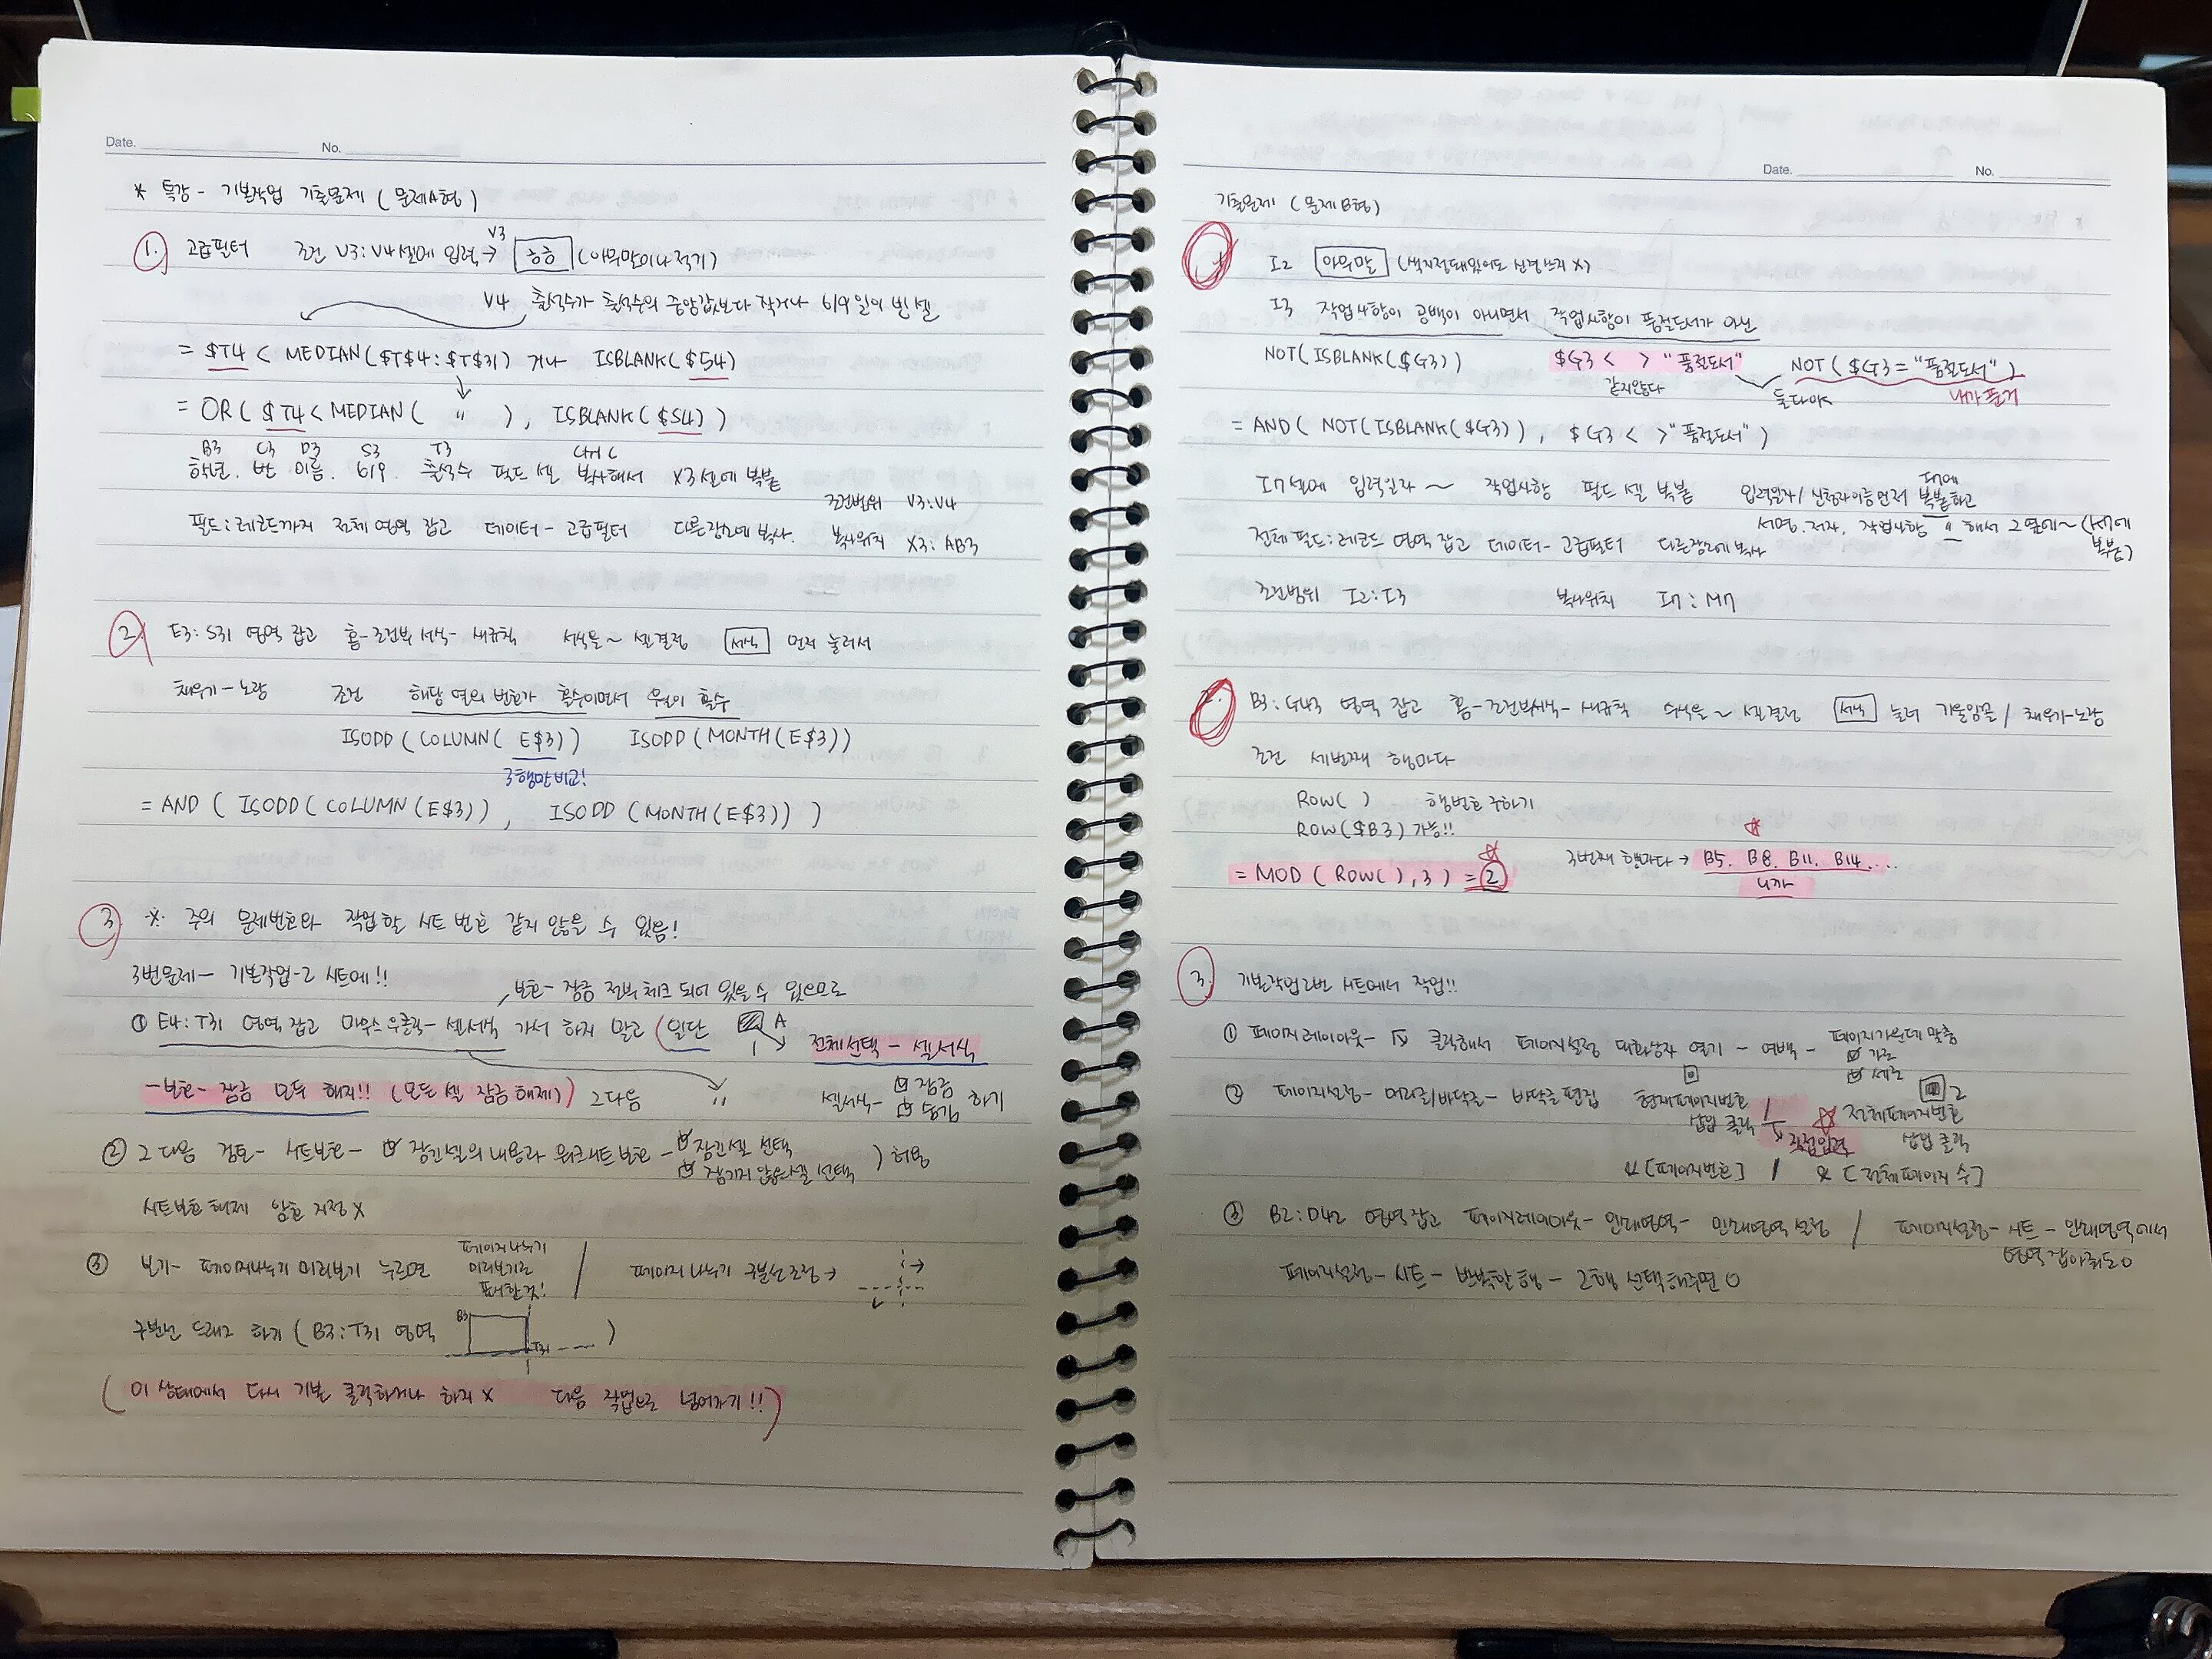 Date. No.
* 특강 - 기본작업 기출문제 (문제A형)
1. 고급필터 조건 V3:V4셀에 입력 → V3 흐흐 (아무말이나 적기)
V4 출석수가 출석수의 중앙값보다 작거나 6/9일이 빈 셀
= $T4 < MEDIAN($T$4:$T$31) 거나 ISBLANK($S4)
= OR($T4 < MEDIAN( " ), ISBLANK($S4))
B3 C3 D3 S3 T3 Ctrl C
학년. 반 이름. 6/9. 출석수 필드 셀 복사해서 X3셀에 복붙
조건범위 V3:V4
필드:레코드까지 전체 영역 잡고 데이터 - 고급필터 다른장소에 복사. 복사위치 X3:AB3
2. E3:S31 영역 잡고 홈-조건부 서식-새규칙 수식을~ 셀결정 서식 먼저 눌러서
채우기-노랑 조건 해당 열의 번호가 홀수이면서 월이 홀수
ISODD(COLUMN(E$3)) ISODD(MONTH(E$3))
3행만 비교!
= AND ( ISODD(COLUMN(E$3)), ISODD(MONTH(E$3)) )
3. ※ 주의 문제번호와 작업할 시트 번호 같지 않을 수 있음!
3번문제 - 기본작업-2 시트에!!
보호-잠금 전부 체크 되어 있을 수 있으므로
① E4:T31 영역 잡고 마우스우클릭-셀서식 가서 하지 말고 (일단 A 1 → 전체선택 - 셀서식
-보호- 잠금 모두 해제!! (모든 셀 잠금 해제)) 그다음 " 셀서식- 잠금 숨김 하기
② 그다음 검토- 시트보호- 잠긴셀의 내용과 워크시트 보호 - 잠긴셀 선택 잠기지 않은 셀 선택 ) 허용
시트보호 해제 암호 지정 X
③ 보기- 페이지나누기 미리보기 누르면 페이지나누기 미리보기로 표시할것! / 페이지 나누기 구분선 조정 →
구분선 드래그 하기 (B3:T31 영역 B3 T31 )
(이 상태에서 다시 기본 클릭하거나 하지 X 다음 작업으로 넘어가기!!)
Date. No.
기출문제 (문제B형)
1. I2 아무말 (색지정돼있어도 신경쓰지 X)
I3 작업사항이 공백이 아니면서 작업사항이 품절도서가 아닌
NOT(ISBLANK($G3)) $G3 < > "품절도서" NOT($G3="품절도서")
같지않다 둘다 내가 푼거
= AND( NOT(ISBLANK($G3)), $G3 < >"품절도서")
I7셀에 입력일자 ~ 작업사항 필드 셀 복붙 입력일자/신청자이름먼저 I7에 복붙하고
서명.저자. 작업사항 " 해서 그옆에~ (K7에 복붙)
전체 필드:레코드 영역 잡고 데이터-고급필터 다른장소에 복사
조건범위 I2:I3 복사위치 I7:M7
2. B3:G43 영역 잡고 홈-조건부서식-새규칙 수식을~ 셀결정 서식 눌러 기울임꼴 / 채우기-노랑
조건 세번째 행마다
ROW( ) 행번호 구하기
ROW($B3) 가능!!
3번째 행마다 → B5. B8. B11. B14....
= MOD ( ROW( ), 3 ) = 2 니까
3. 기본작업2번 시트에서 작업!!
① 페이지레이아웃- 클릭해서 페이지설정 대화상자 열기 - 여백 - 페이지가운데 맞춤 가로 세로
② 페이지설정- 머리글/바닥글- 바닥글 편집 현재페이지번호 삽입 클릭 / 직접입력 전체페이지번호 삽입 클릭
&[페이지번호] / &[전체페이지 수]
③ B2:D42 영역잡고 페이지레이아웃-인쇄영역- 인쇄영역 설정 / 페이지설정- 시트- 인쇄영역에서 영역 잡아줘도 O
페이지설정- 시트- 반복할 행 - 2행 선택해주면 O